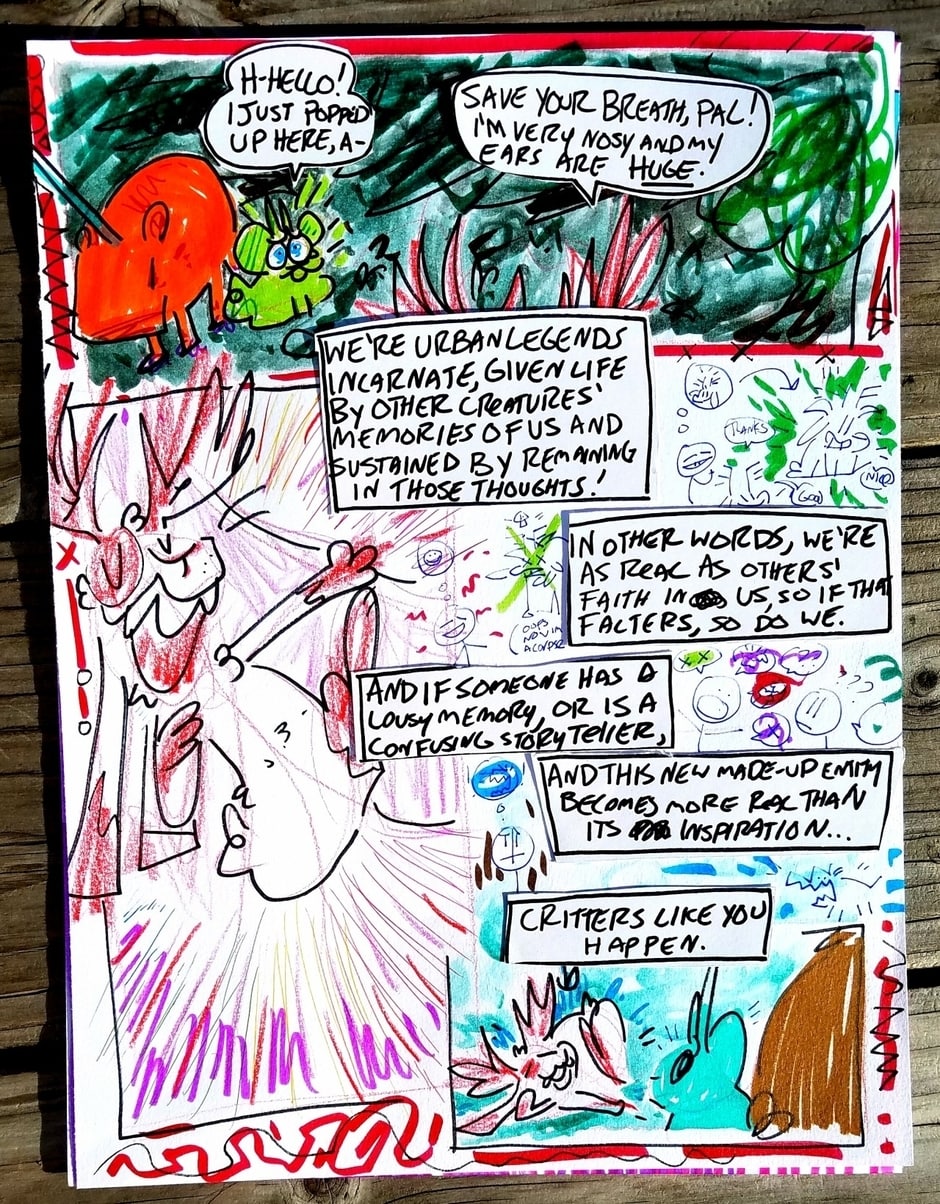 H-HELLO!
I JUST POPPED
UP HERE, A-
SAVE YOUR BREATH, PAL!
I'M VERY NOSY AND MY
EARS ARE HUGE.
WE'RE URBAN LEGENDS
INCARNATE, GIVEN LIFE
BY OTHER CREATURES'
MEMORIES OF US AND
SUSTAINED BY REMAINING
IN THOSE THOUGHTS!
THANKS
GOO
NICE
IN OTHER WORDS, WE'RE
AS REAL AS OTHERS'
FAITH IN US, SO IF THAT
FALTERS, SO DO WE.
OOPS
NOW I'M
A CORPSE
AND IF SOMEONE HAS A
LOUSY MEMORY, OR IS A
CONFUSING STORYTELLER,
AND THIS NEW MADE-UP ENTITY
BECOMES MORE REAL THAN
ITS INSPIRATION...
CRITTERS LIKE YOU
HAPPEN.